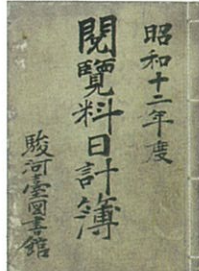 昭和十二年度
閲覽料日計簿
駿河臺圖書館